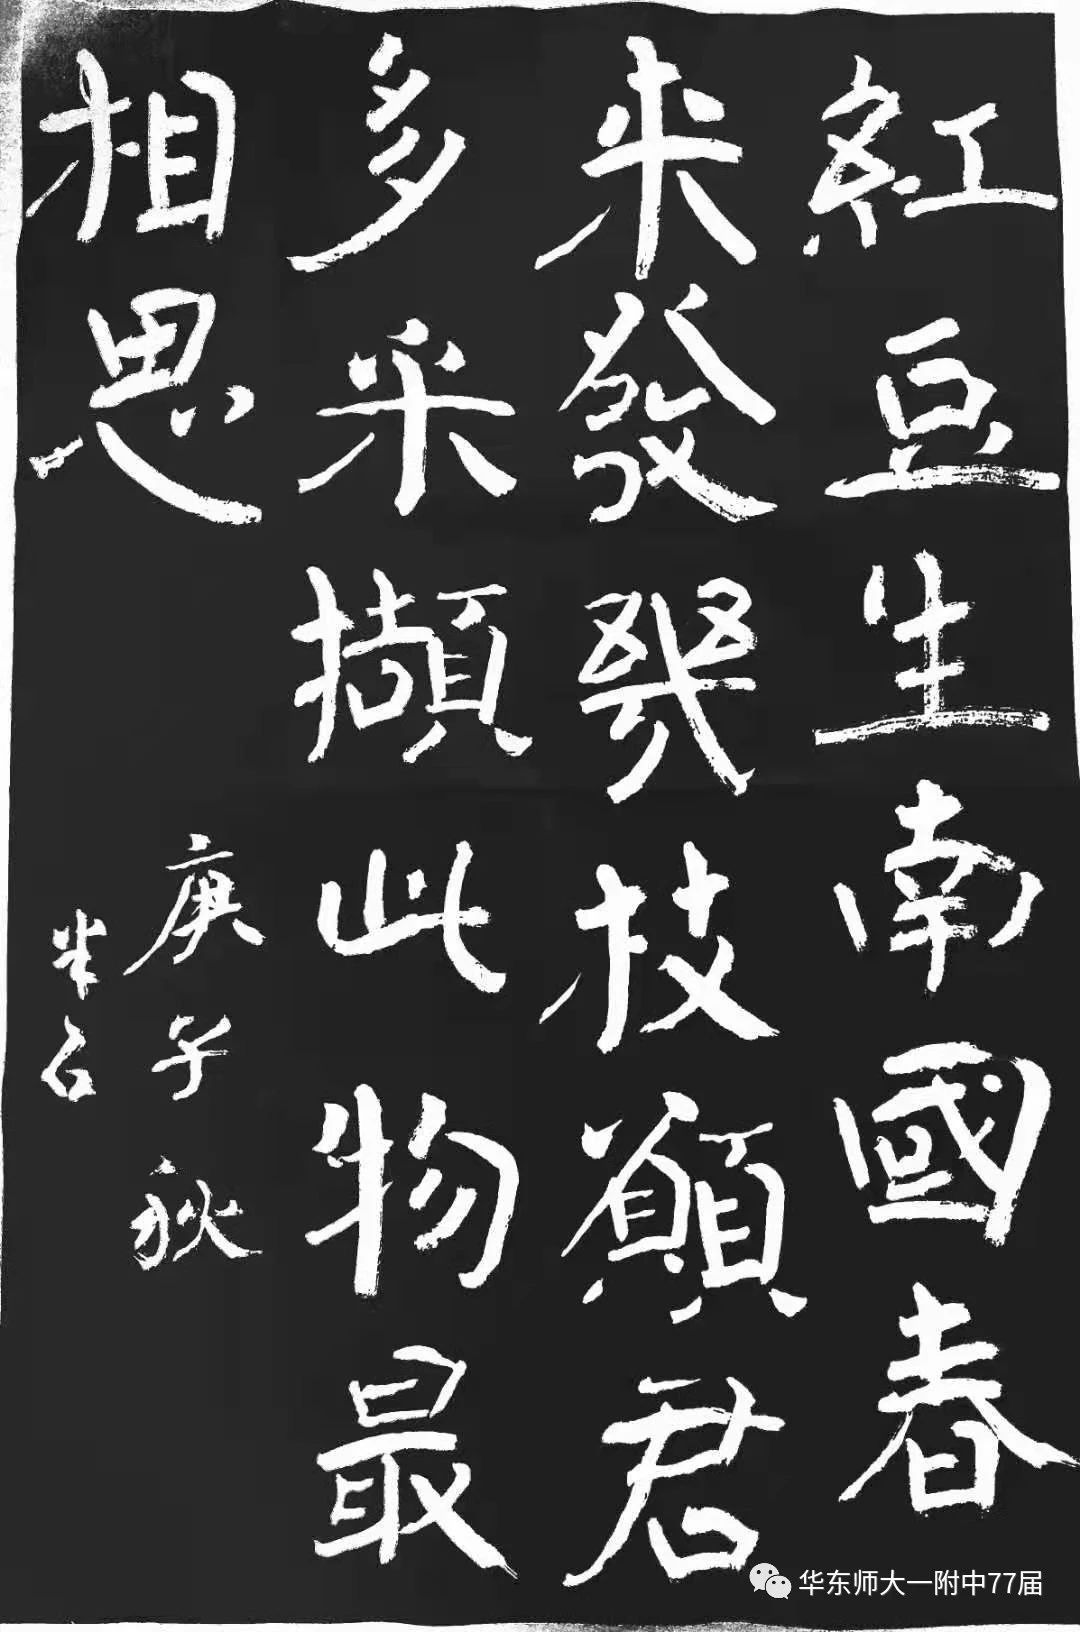 紅豆生南國春
来發幾枝願君
多采擷此物最
相思
庚子秋
半石
华东师大一附中77届